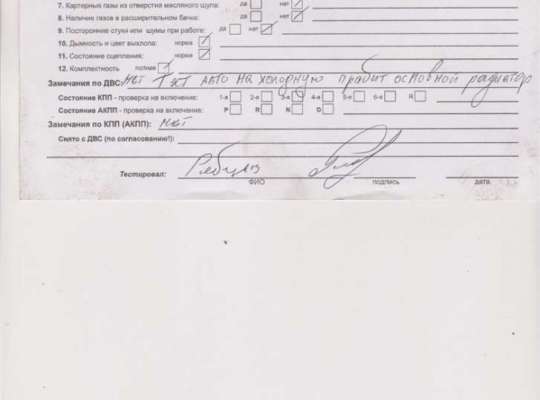 7. Картерные газы из отверстия масляного щупа: да нет
8. Наличие газов в расширительном бачке: да нет
9. Посторонние стуки или шумы при работе: да нет
10. Дымность и цвет выхлопа: норма
11. Состояние сцепления: норма
12. Комплектность полная
Замечания по ДВС: авто на холодную основной
Состояние КПП - проверка на включение: 1-я 2-я 3-я 4-я 5-я 6-я R
Состояние АКПП - проверка на включение: P R N D
Замечания по КПП (АКПП):
Снято с ДВС (по согласованию!):
Тестировал:
ФИО подпись дата